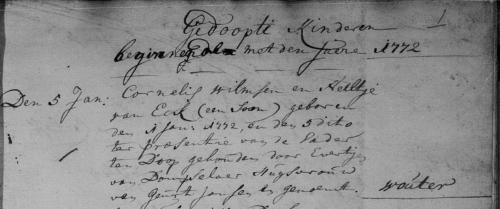 Gedoopte Kinderen 1
beginnende met den Jaere 1772
Den 5 Jan: Cornelis Wilmsen en Heiltje
van Eck (een Soon) geboren
den 1 Janr 1772, en den 5 dito
ter presentie van de Vader
ten Doop gehouden door Evertjen
van Dompselaer Huysvrouw
van Geurt Jansen en genaemt. wouter